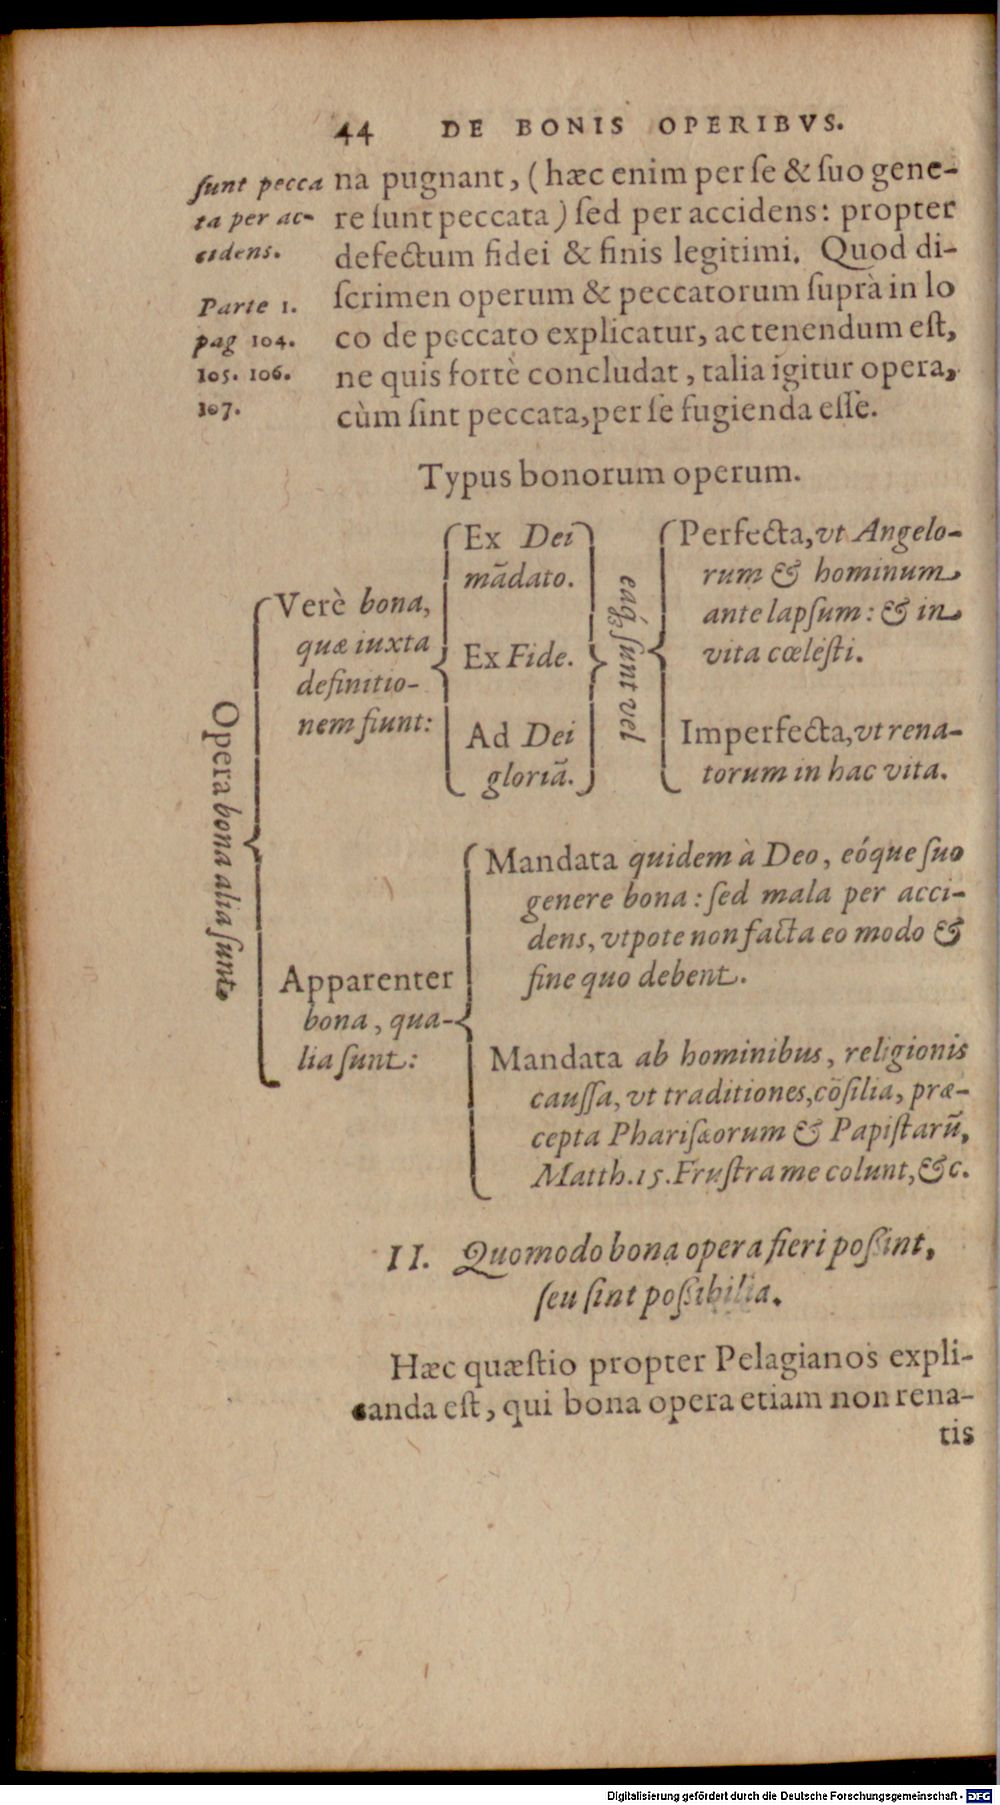 44 DE BONIS OPERIBVS.
ſunt pecca
ta per ac-
cidens.
Parte 1.
pag 104.
105. 106.
107.
na pugnant, (hæc enim per ſe & ſuo gene-
re ſunt peccata) ſed per accidens: propter
defectum fidei & finis legitimi. Quod di-
ſcrimen operum & peccatorum ſuprà in lo
co de peccato explicatur, ac tenendum eſt,
ne quis fortè concludat, talia igitur opera,
cùm ſint peccata, per ſe fugienda eſſe.
Typus bonorum operum.
Opera bona alia ſunt
Verè bona,
quæ iuxta
definitio-
nem fiunt:
Ex Dei
mādato.
Ex Fide.
Ad Dei
gloriā.
eáq́ꝫ ſunt vel
Perfecta, vt Angelo-
rum & hominum
ante lapſum: & in
vita cœleſti.
Imperfecta, vt rena-
torum in hac vita.
Apparenter
bona, qua-
lia ſunt:
Mandata quidem à Deo, eóque ſuo
genere bona: ſed mala per acci-
dens, vtpote non facta eo modo &
fine quo debent.
Mandata ab hominibus, religionis
cauſſa, vt traditiones, cōſilia, præ-
cepta Phariſæorum & Papiſtarū,
Matth. 15. Fruſtra me colunt, &c.
II. Quomodo bona opera fieri poßint,
ſeu ſint poßibilia.
Hæc quæſtio propter Pelagianos expli-
canda eſt, qui bona opera etiam non rena-
tis
Digitalisierung gefördert durch die Deutsche Forschungsgemeinschaft - DFG